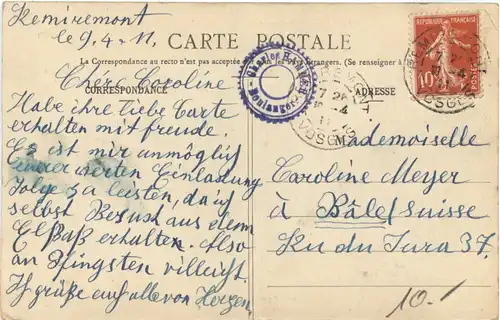 Remiremont
le 9.4.11.
CARTE POSTALE
La Correspondance au recto n'est pas acceptée par tous les pays étrangers. (Se renseigner à
CORRESPONDANCE
ADRESSE
Chère Caroline
Habe ihre liebe Carte
erhalten mit freude.
Es ist mir unmöglich
eurer werten Einladung
Folge zu leisten, da ich
selbst Besuch aus dem
Elsaß erhalten. Also
an Pfingsten vielleicht.
Ich grüße euch alle von Herzen.
Boulanger
REPUBLIQUE FRANÇAISE
POSTES
10
VOSGES
Mademoiselle
Caroline Meyer
à Bâle/Suisse
Ru du Jura 37.
10.-